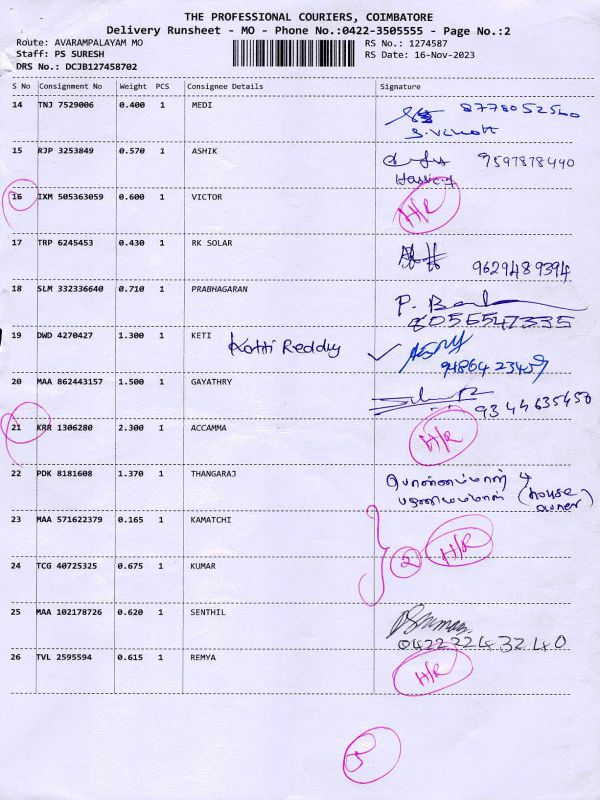 THE PROFESSIONAL COURIERS, COIMBATORE
Delivery Runsheet - MO - Phone No.:0422-3505555 - Page No.:2
Route: AVARAMPALAYAM MO RS No.: 1274587
Staff: PS SURESH RS Date: 16-Nov-2023
DRS No.: DCJB127458702
S No Consignment No Weight PCS Consignee Details Signature
14 TNJ 7529006 0.400 1 MEDI 8778052560
15 RJP 3253849 0.570 1 ASHIK 9597878440
16 IXM 505363059 0.600 1 VICTOR H/R
17 TRP 6245453 0.430 1 RK SOLAR 9629489394
18 SLM 332336640 0.710 1 PRABHAGARAN P.
8056547335
19 DWD 4270427 1.300 1 KETI Kotti Reddy
9486423457
20 MAA 862443157 1.500 1 GAYATHRY
9344635450
21 KRR 1306280 2.300 1 ACCAMMA H/R
22 PDK 8181608 1.370 1 THANGARAJ
(house owner)
23 MAA 571622379 0.165 1 KAMATCHI
24 TCG 40725325 0.675 1 KUMAR 2 H/R
25 MAA 102178726 0.620 1 SENTHIL
04222243240
26 TVL 2595594 0.615 1 REMYA H/R
5